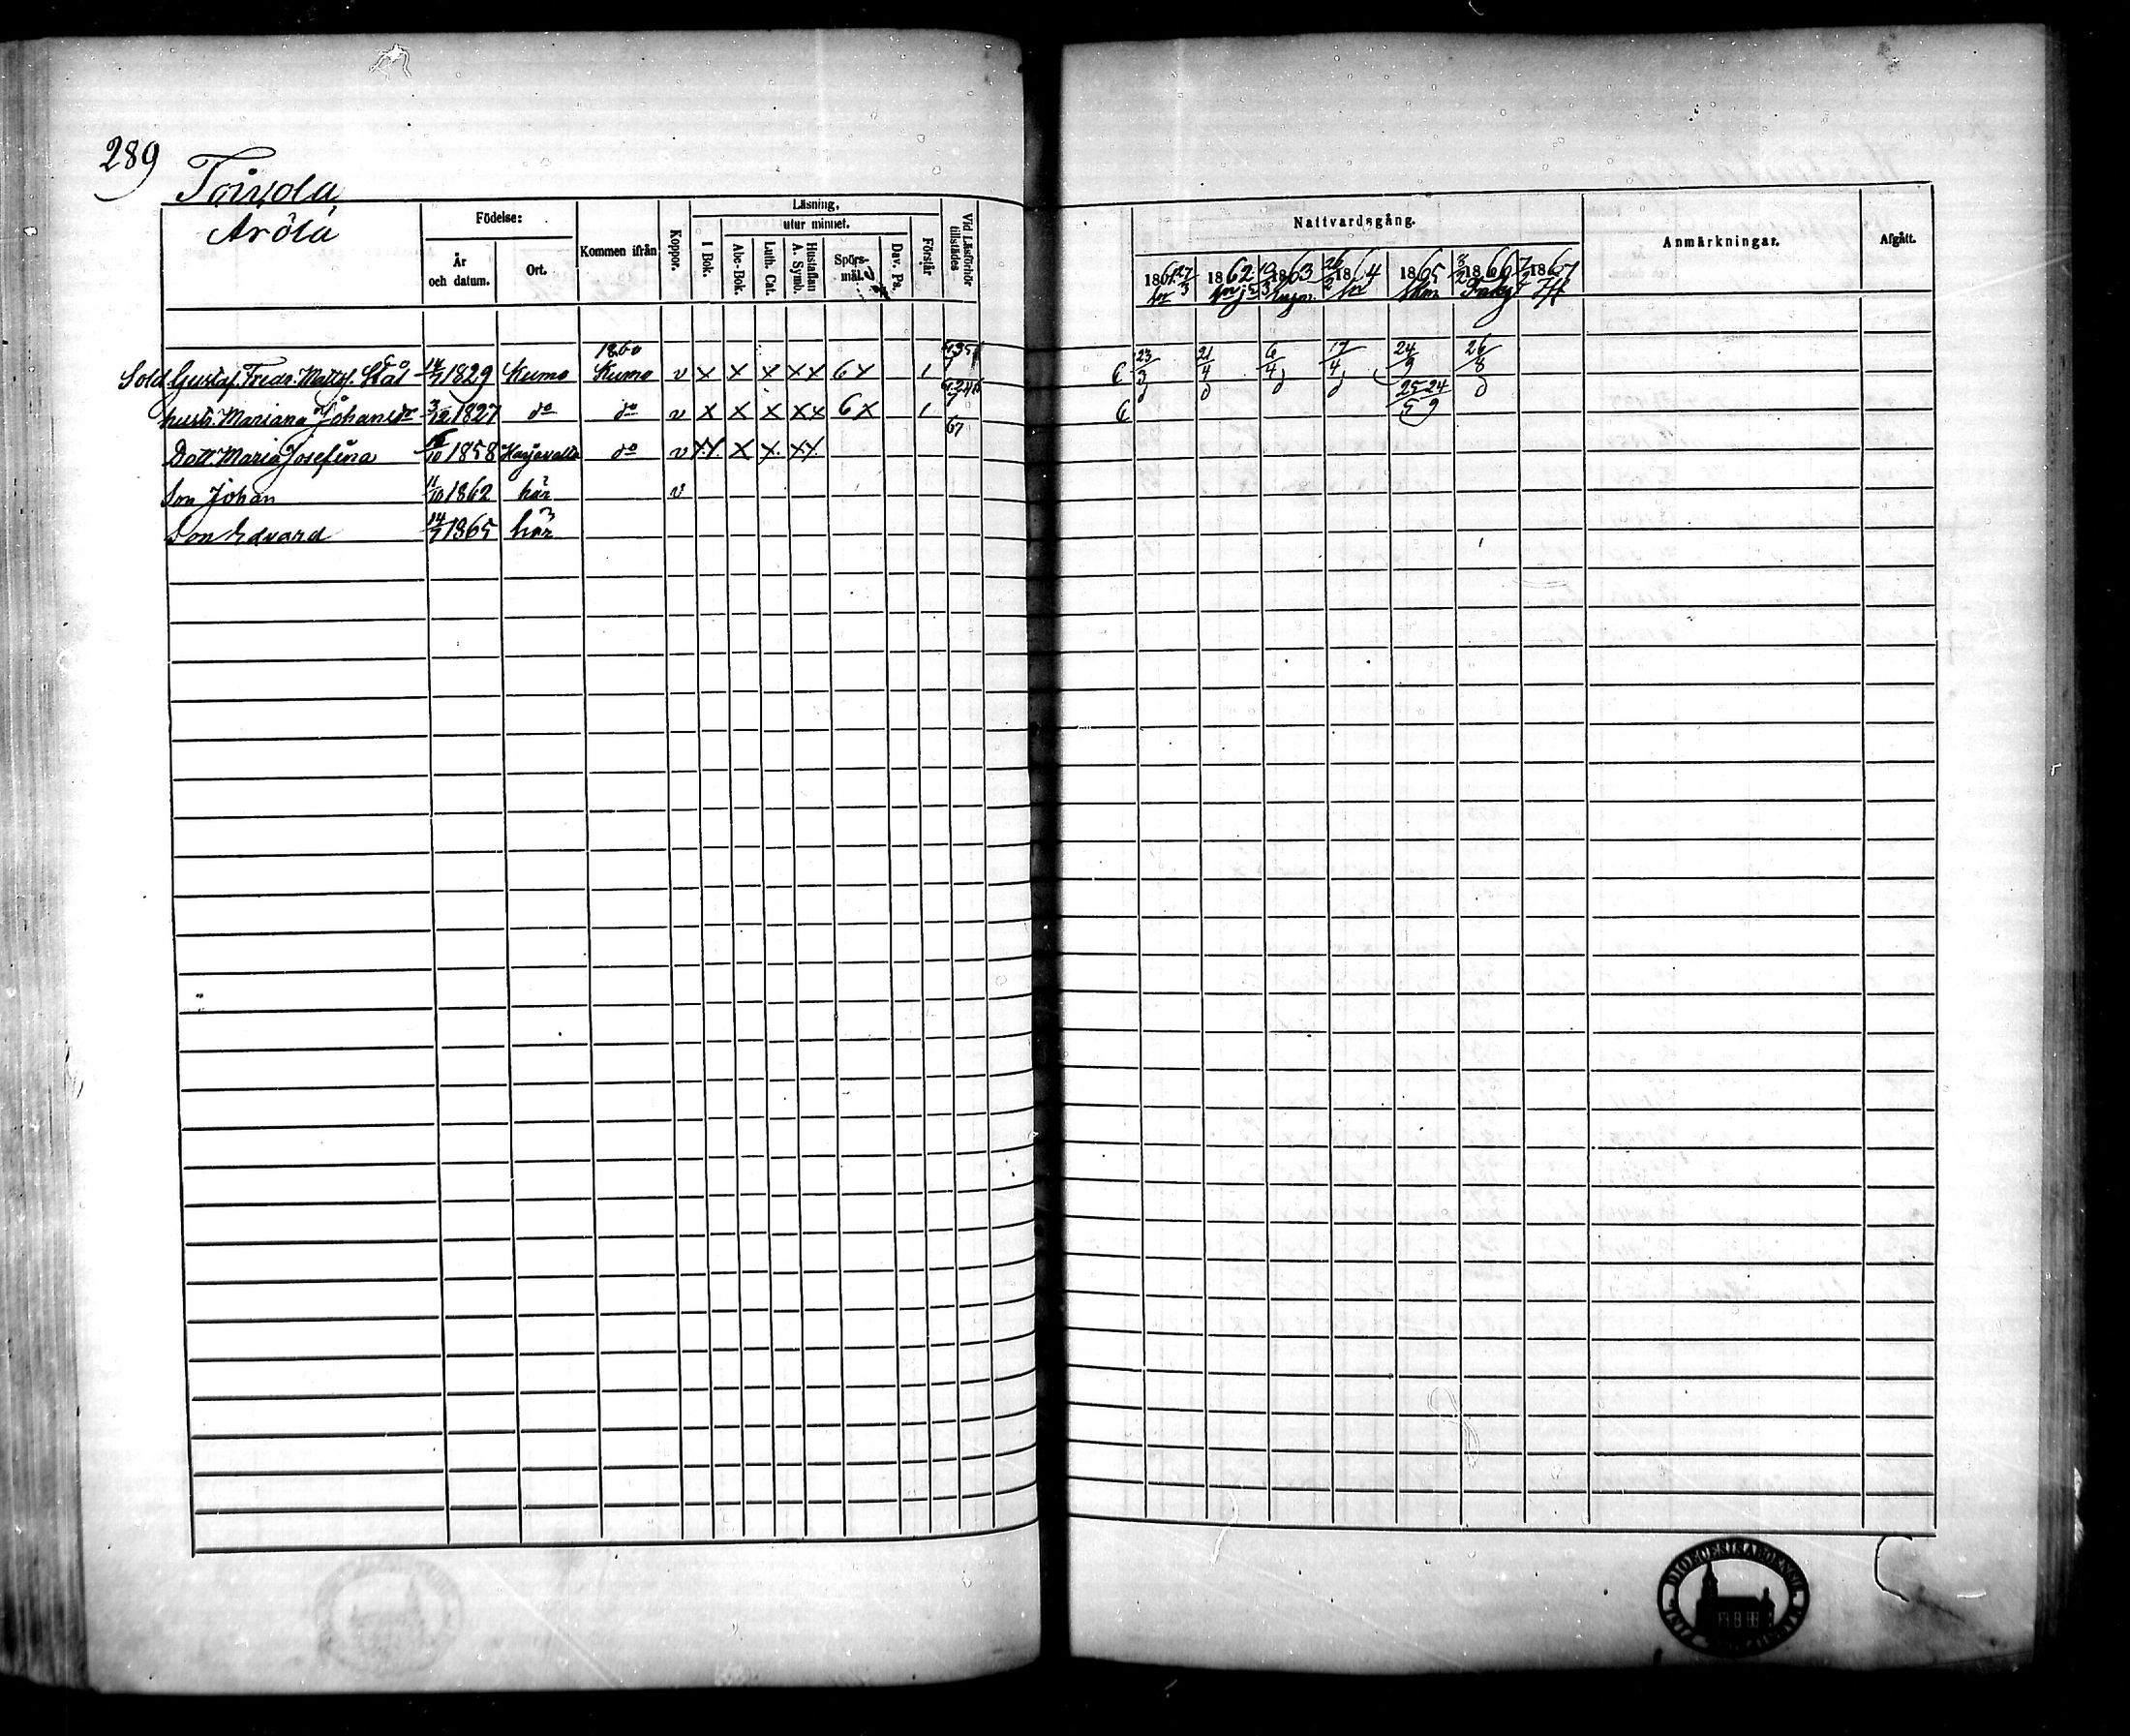 289
Toivola
Arola
Födelse:
År och datum.
Ort.
Kommen ifrån
Koppor.
Läsning,
I Bok.
utur minnet.
Abc-Bok.
Luth. Cat.
Hustaflan A. Symb.
Spörsmål.
Dav. Ps.
Förstår
Vid Läsförhör tillstädes
Nattvardsgång.
1861 1862 1863 1864 1865 1866 1867
Anmärkningar.
Afgått.
1860
Sold Gustaf Fredr. Mattss. Stål 1829 Kumo Kumo v x x x xx 6x 1 6 23/3 21/4 6/4 17/4 24/9 26/8
hustr. Mariana Johansdr 3/12 1827 do do v x x x xx 6x 1 6 25 24/5 9
67
Dott. Maria Josefina 1858 Harjavalta do v xx x x xx
Son Johan 11/10 1862 här v
Son Edvard 14/7 1865 här